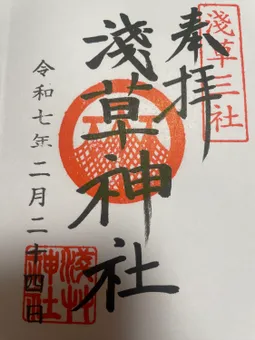 奉拝
淺草三社
淺草神社
令和七年二月二十四日
淺草
神社